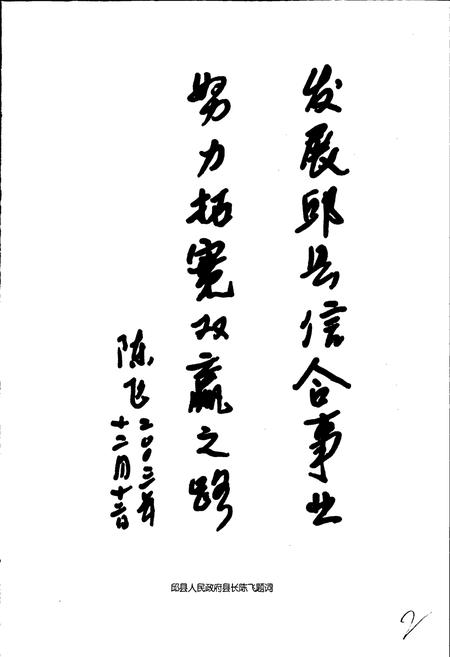 发展邱县信合事业
努力拓宽双赢之路
陈飞
二００三年
十二月十二日
邱县人民政府县长陈飞题词
2